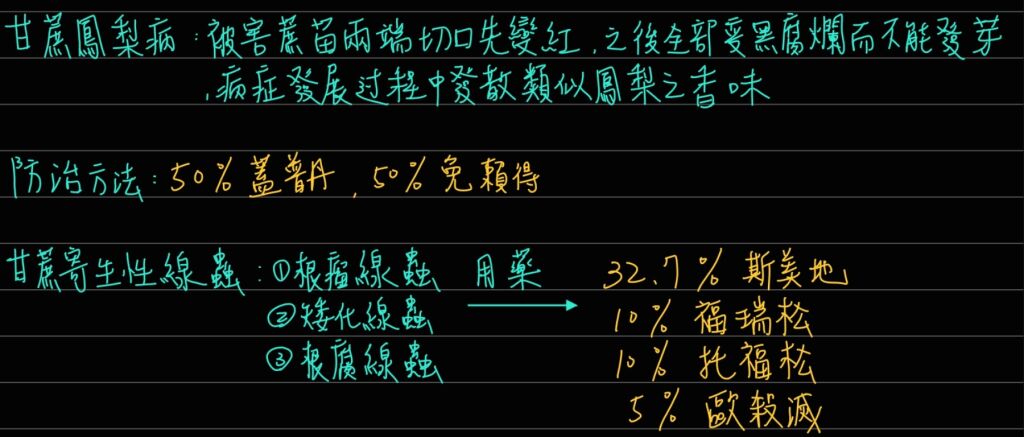 甘蔗鳳梨病：被害蔗苗兩端切口先變紅，之後全部變黑腐爛而不能發芽
，病症發展过程中發散類似鳳梨之香味
防治方法：50% 蓋普丹，50% 免賴得
甘蔗寄生性線蟲：①根瘤線蟲 用藥 32.7% 斯美地
②矮化線蟲 10% 福瑞松
③根腐線蟲 10% 托福松
5% 歐殺滅